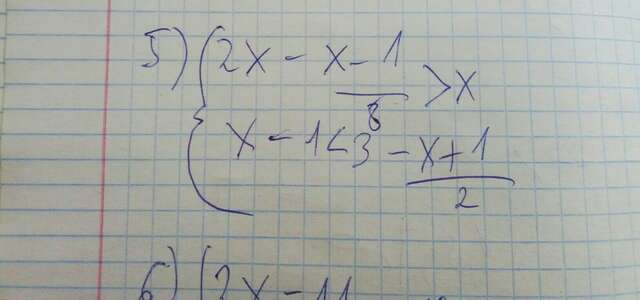 5) { 2x - (x-1)/8 > x
x - 1 < 3 - (x+1)/2
6) ( 2x - 11